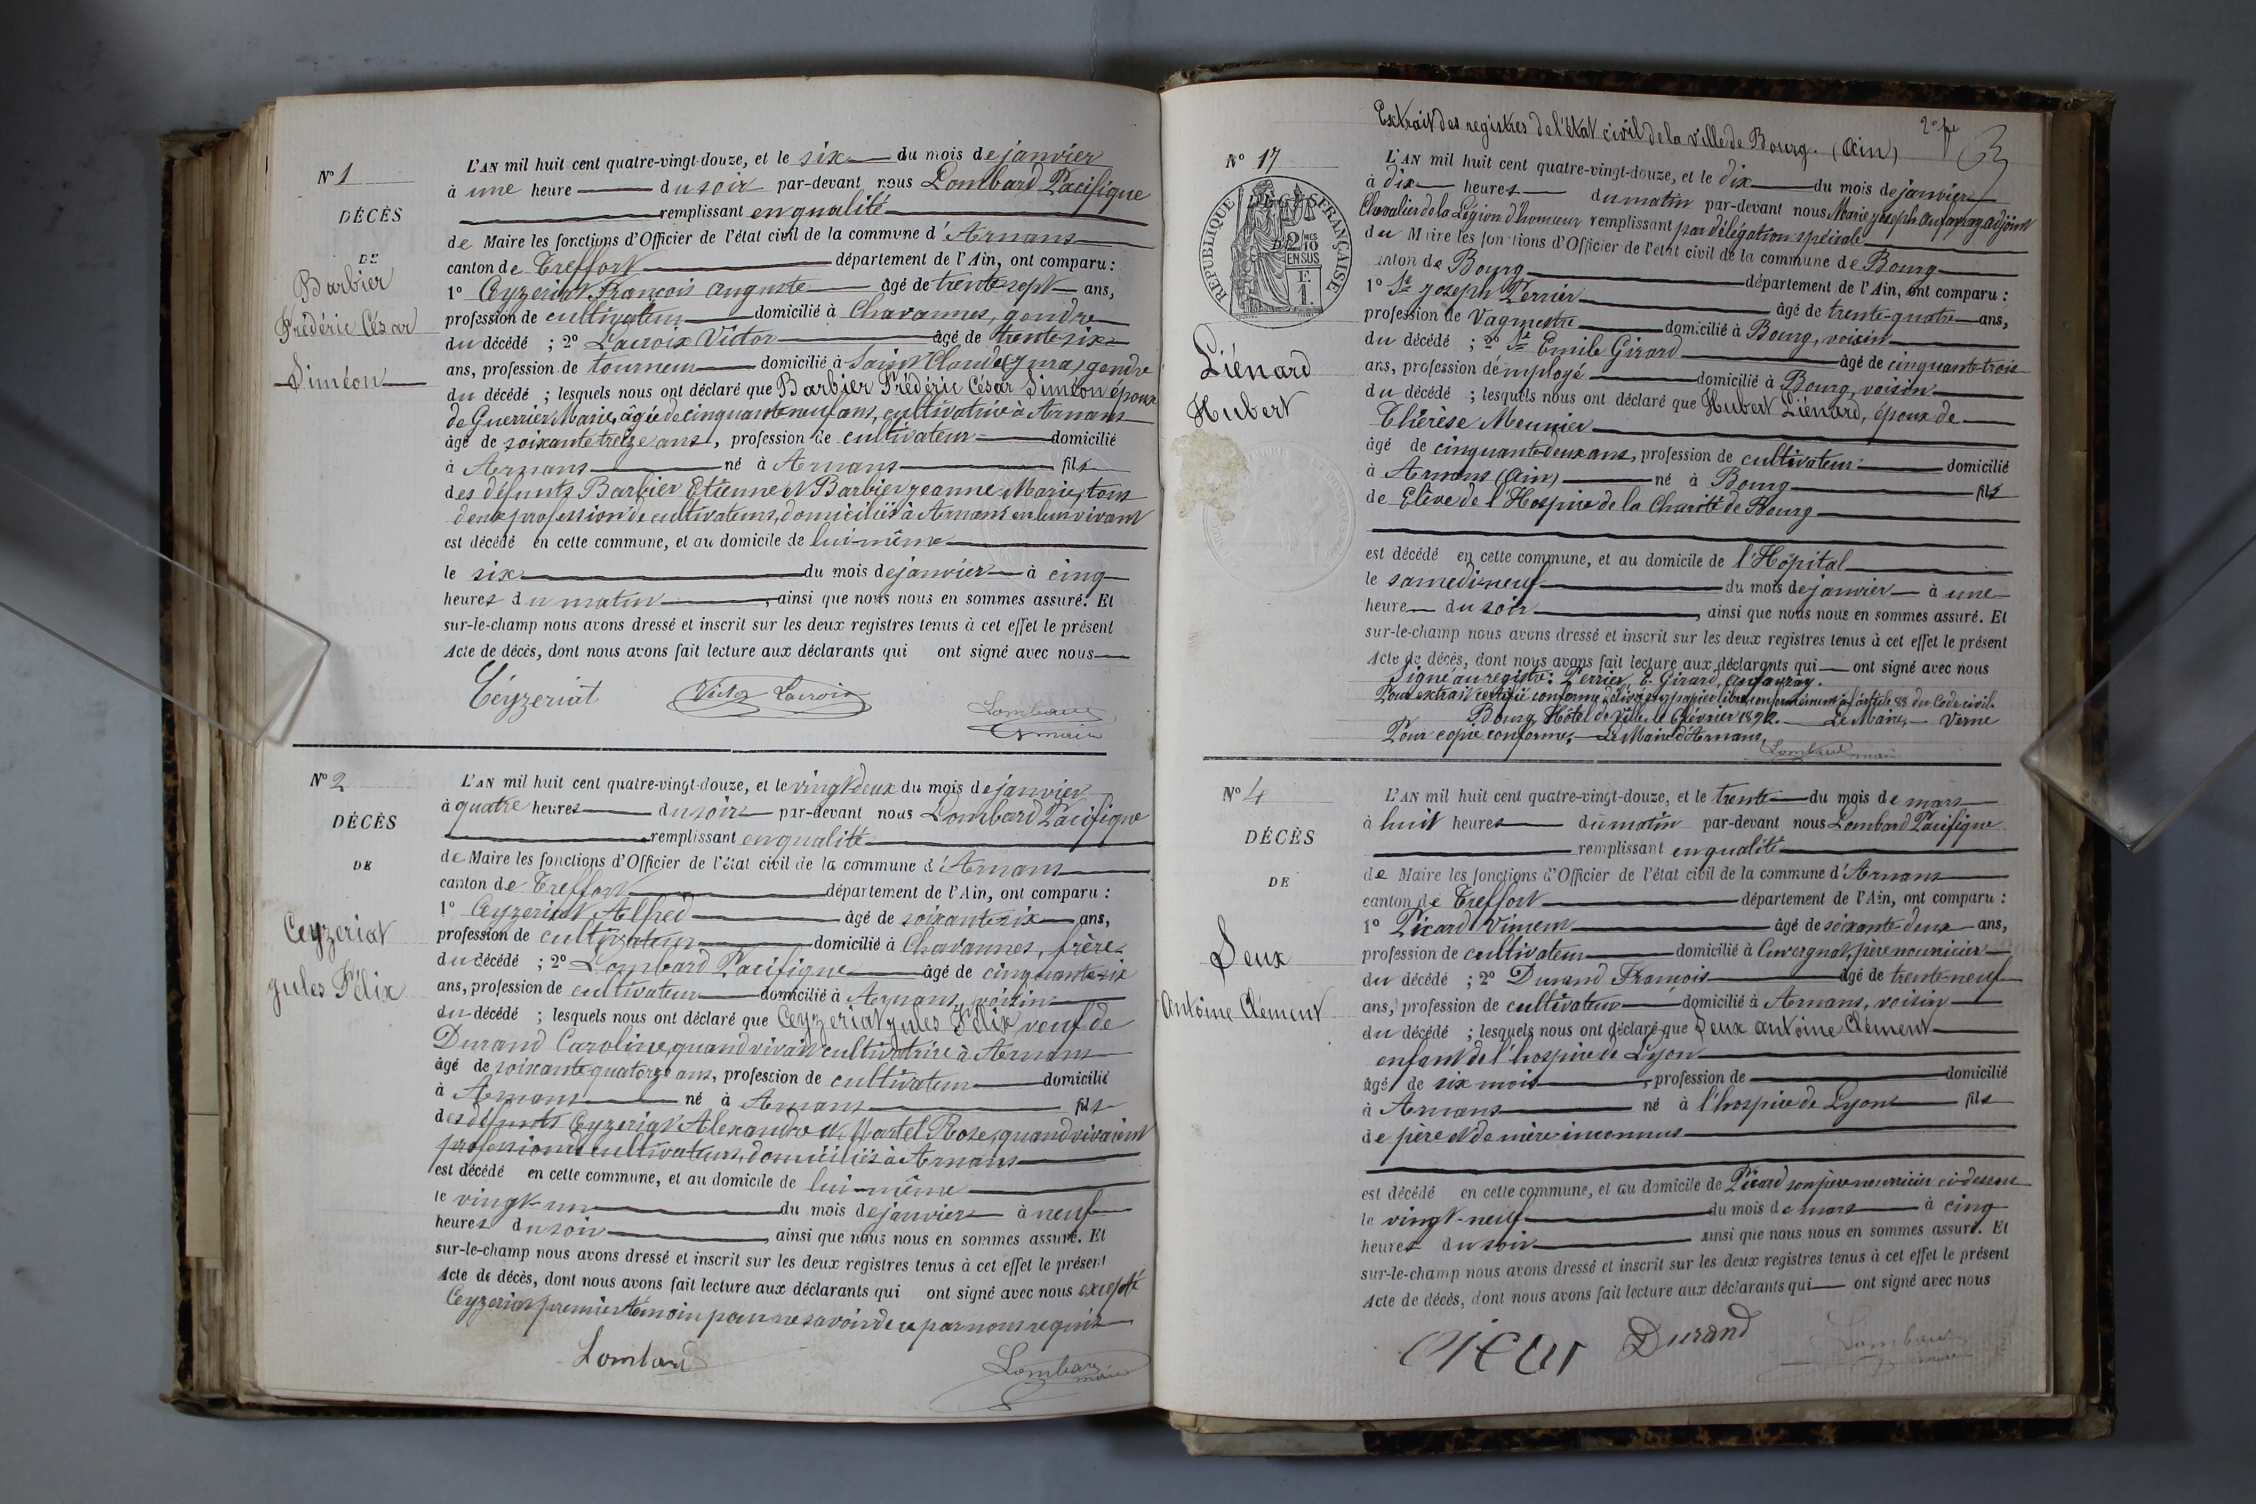 N° 1
DÉCÈS
DE
Barbier
Frédéric César
Siméon
L'AN mil huit cent quatre-vingt-douze, et le six du mois de janvier
à une heure du soir par-devant nous Lombard Pacifique
remplissant en qualité
de Maire les fonctions d'Officier de l'état civil de la commune d'Arnans
canton de Treffort département de l'Ain, ont comparu :
1° Ceyzeriat François Auguste âgé de trente-sept ans,
profession de cultivateur domicilié à Chavannes, gendre
du décédé ; 2° Lacroix Victor âgé de trente-six
ans, profession de tourneur domicilié à Saint Claude (Jura) gendre
du décédé ; lesquels nous ont déclaré que Barbier Frédéric César Siméon époux
de Guerrier Marie, âgée de cinquante-neuf ans, cultivatrice à Arnans
âgé de soixante treize ans, profession de cultivateur domicilié
à Arnans né à Arnans fils
des défunts Barbier Etienne et Barbier Jeanne Marie, tous
deux profession de cultivateurs, domiciliés à Arnans en leur vivant
est décédé en cette commune, et au domicile de lui-même
le six du mois de janvier à cinq
heures du matin, ainsi que nous nous en sommes assuré. Et
sur-le-champ nous avons dressé et inscrit sur les deux registres tenus à cet effet le présent
Acte de décès, dont nous avons fait lecture aux déclarants qui ont signé avec nous
Ceyzeriat Victor Lacroix Lombard
maire
N° 2
DÉCÈS
DE
Ceyzeriat
Jules Félix
L'AN mil huit cent quatre-vingt-douze, et le vingt deux du mois de janvier
à quatre heures du soir par-devant nous Lombard Pacifique
remplissant en qualité
de Maire les fonctions d'Officier de l'état civil de la commune d'Arnans
canton de Treffort département de l'Ain, ont comparu :
1° Ceyzeriat Alfred âgé de soixante-six ans,
profession de cultivateur domicilié à Chavannes, frère
du décédé ; 2° Lombard Pacifique âgé de cinquante-six
ans, profession de cultivateur domicilié à Arnans, voisin
du décédé ; lesquels nous ont déclaré que Ceyzeriat Jules Félix veuf de
Durand Caroline, quand vivait cultivatrice à Arnans
âgé de soixante quatorze ans, profession de cultivateur domicilié
à Arnans né à Arnans fils
des défunts Ceyzeriat Alexandre et Martel Rose, quand vivaient
profession de cultivateurs, domiciliés à Arnans
est décédé en cette commune, et au domicile de lui-même
le vingt-un du mois de janvier à neuf
heures du soir, ainsi que nous nous en sommes assuré. Et
sur-le-champ nous avons dressé et inscrit sur les deux registres tenus à cet effet le présent
Acte de décès, dont nous avons fait lecture aux déclarants qui ont signé avec nous excepté
Ceyzeriat premier témoin pour ne savoir de ce par nous requis
Lombard Lombard
maire
Extrait des registres de l'état civil de la ville de Bourg. (Ain)
3
N° 17
RÉPUBLIQUE FRANÇAISE
2/10 EN SUS
Liénard
Hubert
L'AN mil huit cent quatre-vingt-douze, et le dix du mois de janvier
à dix heures du matin par-devant nous Marie Joseph adjoint
Chevalier de la Légion d'honneur remplissant par délégation spéciale
du Maire les fonctions d'Officier de l'état civil de la commune de Bourg
canton de Bourg département de l'Ain, ont comparu :
1° Sr Joseph Perrier âgé de trente-quatre ans,
profession de Vagmestre domicilié à Bourg, voisin
du décédé ; 2° Sr Emile Girard âgé de cinquante-trois
ans, profession d'employé domicilié à Bourg, voisin
du décédé ; lesquels nous ont déclaré que Hubert Liénard, époux de
Thérèse Meunier
âgé de cinquante-deux ans, profession de cultivateur domicilié
à Arnans (Ain) né à Bourg fils
de Elève de l'Hospice de la Charité de Bourg
est décédé en cette commune, et au domicile de l'Hôpital
le samedi neuf du mois de janvier à une
heure du soir, ainsi que nous nous en sommes assuré. Et
sur-le-champ nous avons dressé et inscrit sur les deux registres tenus à cet effet le présent
Acte de décès, dont nous avons fait lecture aux déclarants qui ont signé avec nous
Signé au registre : Perrier, E. Girard,
Pour extrait certifié conforme délivré sur papier libre conformément à l'article 88 du Code civil.
Bourg, Hôtel de Ville, le février 1892. Le Maire, Verne
Pour copie conforme, Le Maire d'Arnans,
Lombard maire
N° 4
DÉCÈS
DE
Deux
Antoine Clément
L'AN mil huit cent quatre-vingt-douze, et le trente du mois de mars
à huit heures du matin par-devant nous Lombard Pacifique
remplissant en qualité
de Maire les fonctions d'Officier de l'état civil de la commune d'Arnans
canton de Treffort département de l'Ain, ont comparu :
1° Picard Vincent âgé de soixante-deux ans,
profession de cultivateur domicilié à Cuvergnat, père nourricier
du décédé ; 2° Durand François âgé de trente-neuf
ans, profession de cultivateur domicilié à Arnans, voisin
du décédé ; lesquels nous ont déclaré que Deux Antoine Clément
enfant de l'hospice de Lyon
âgé de six mois, profession de domicilié
à Arnans né à l'hospice de Lyon fils
de père et de mère inconnus
est décédé en cette commune, et au domicile de Picard son père nourricier ci-dessus
le vingt-neuf du mois de mars à cinq
heures du soir ainsi que nous nous en sommes assuré. Et
sur-le-champ nous avons dressé et inscrit sur les deux registres tenus à cet effet le présent
Acte de décès, dont nous avons fait lecture aux déclarants qui ont signé avec nous
Durand Lombard
maire